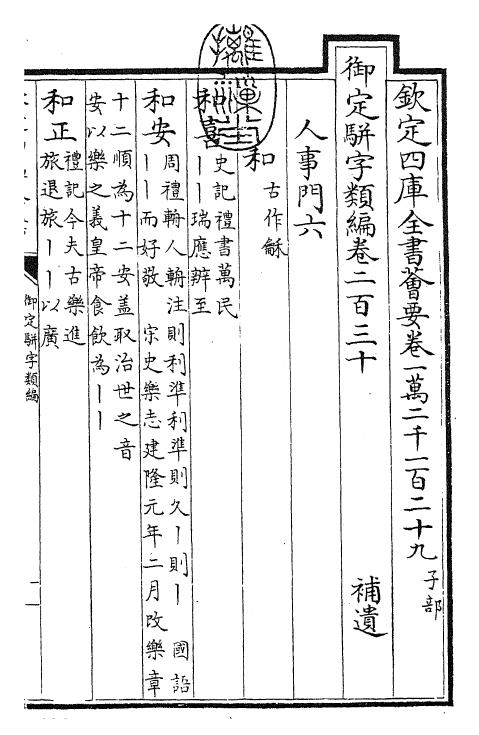 欽定四庫全書薈要卷一萬二千一百二十九 子部
御定駢字類編卷二百三十 補遺
人事門六
和 古作龢
和喜 史記禮書萬民
丨丨瑞應辨至
和安 周禮輈人輈注則利準利準則久丨則丨 國語
丨丨而好敬 宋史樂志建隆元年二月改樂章
十二順為十二安蓋取治世之音
安以樂之義皇帝食飲為丨丨
和正 禮記今夫古樂進
旅退旅丨丨以廣
御定駢字類編